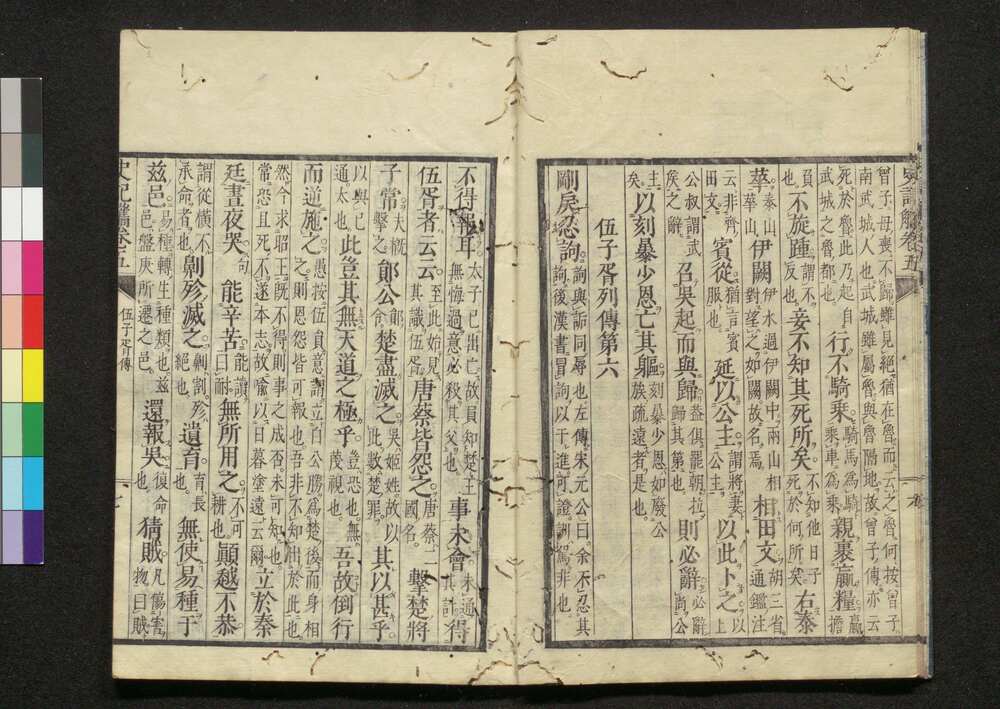 曾子母喪不歸雖見絕猶在魯而云之魯何按曾子
南武城人也武城雖屬魯與魯隔地故曾子傳亦云
死於魯此乃起自
武城之魯都也
行不騎乘
騎馬爲騎
乘車爲乘
親裹贏糧
贏
擔
負
也
不旋踵
謂不
反也
妾不知其死所矣
不知他日子
死於何所矣
右秦
華
泰山
華山
伊闕
伊水過伊闕中兩山相
對望之如闕故名焉
相田文
胡三省
通鑑注
云非齊
田文
賓從
猶言賓
服也
延以公主
謂將妻
公主
以此卜之
以
上
公叔謂武
侯之辭
召吳起而與歸
偕罷朝拉
歸其第也
則必辭
必辭
尚公
主
矣
以刻暴少恩亡其軀
刻暴少恩如廢公
族疏遠者是也
伍子胥列傳第六
剛戾忍訽
訽與詬同辱也左傳宋元公曰余不忍其
訽後漢書冒訽以干進可證訓罵非也
不得報耳
太子已出亡故員知楚王
無悔過意必殺其父也
事未會
未通
其詐
得
伍胥者云云
至此始見
其識伍胥
唐蔡皆怨之
唐蔡二
國名
擊楚將
子常
大概
擊之
鄖公
食
鄖
楚盡滅之
吳姬姓故
此數楚罪
其以甚乎
以與已
通太也
此豈其無天道之極乎
豈恐也無
蔑視也
吾故倒行
而道施之
愚按伍員意謂立白公勝爲楚後而身相
之則恩怨皆可報也吾非不知出於此也
然今求昭王既不得則事之成否未可知也
常恐且死不遂本志故喻以日暮塗遠云爾
立於秦
廷晝夜哭
句
能辛苦
能讀
曰耐
無所用之
不可
耕也
顚越不恭
謂從橫不
承命者也
劓殄滅之
劓割殄
絕也
遺育
育長
也
無使易種于
茲邑
易種轉生種類也茲
邑盤庚所遷之邑
還報吳
復命
也
猜賊
凡傷害
物曰賊
史記觿卷五
伍子胥傳